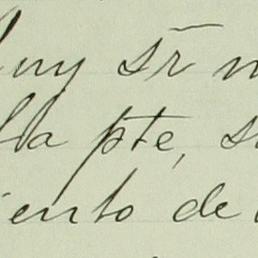 Muy Sr m
la pte, s
iento de